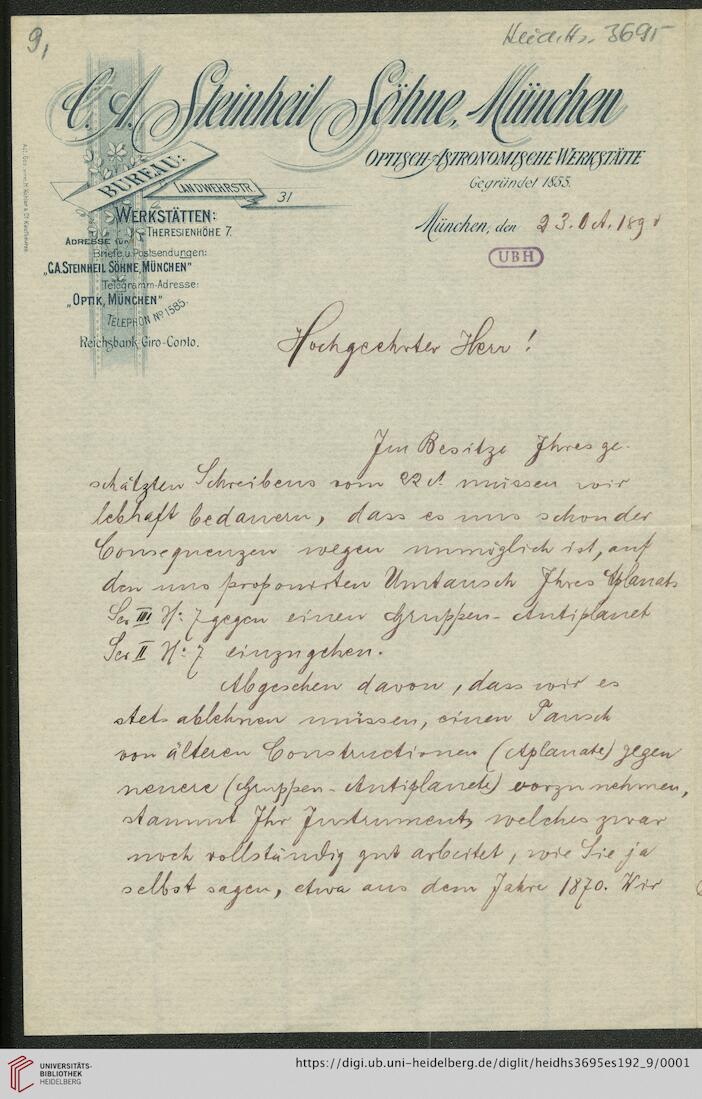 9,
Heid. Hs. 3695
C. A. Steinheil Söhne, München
OPTISCH-ASTRONOMISCHE WERKSTÄTTE
Gegründet 1855.
BUREAU:
LANDWEHRSTR. 31
WERKSTÄTTEN:
THERESIENHÖHE 7.
ADRESSE für
Briefe u. Postsendungen:
„C.A. STEINHEIL SÖHNE, MÜNCHEN"
Telegramm-Adresse:
„OPTIK, MÜNCHEN"
TELEPHON No 1585.
Reichsbank-Giro-Conto.
München, den 23. Oct. 189
UBH
Hochgeehrter Herr!
Im Besitze Ihres ge-
schätzten Schreibens vom 22 ct. müssen wir
lebhaft bedauern, dass es uns schon der
Consequenzen wegen unmöglich ist, auf
den uns proponirten Umtausch Ihres Aplanats
Ser III No: 7 gegen einen Gruppen-Antiplanet
Ser II No: 7 einzugehen.
Abgesehen davon, dass wir es
stets ablehnen müssen, einen Tausch
von älteren Constructionen (Aplanate) gegen
neuere (Gruppen-Antiplanete) vorzunehmen,
stammt Ihr Instrument, welches zwar
noch vollständig gut arbeitet, wie Sie ja
selbst sagen, etwa aus dem Jahre 1870. Wir
UNIVERSITÄTS-
BIBLIOTHEK
HEIDELBERG
https://digi.ub.uni-heidelberg.de/diglit/heidhs3695es192_9/0001